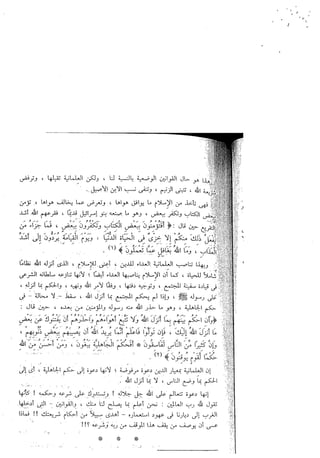 هذا هو حال القوانين الوضعية بالنسبة لنا ، ولكن العلمانية تقبلها ، وترفض
شريعة الله ، تتبنى الزنيم ، وتنفى نسب الابن الأصيل .
فهى تأخذ من الإسلام ما يوافق هواها ، وتعرض عما يخالف هواها ، تؤمن
ببعض الكتاب وتكفر ببعض ، وهو ما صنعه بنو إسرائيل قديمًا ، فقرعهم الله أشد
التقريع حين قال : ﴿ أفتؤمنون ببعض الكتاب وتكفرون ببعض ، فما جزاء من
يفعل ذلك منكم إلا خزى فى الحياة الدنيا ، ويوم القيامة يردون إلى أشد
العذاب ، وما الله بغافل عما تعملون ﴾ (١)
وبهذا تناصب العلمانية العداء للدين ، أعنى للإسلام ، الذى أنزله الله نظامًا
شاملا للحياة ، كما أن الإسلام يناصبها العداء أيضًا ؛ لأنها تنازعه سلطانه الشرعى
فى قيادة سفينة المجتمع ، وتوجيه دفتها ، وفقًا لأمر الله ونهيه ، والحكم بما أنزله ،
على رسوله ﷺ ، وإذا لم يحكم المجتمع بما أنزل الله ، سقط - لا محالة - فى
حكم الجاهلية ، وهو ما حذر الله منه رسوله والمؤمنين من بعده ، حين قال :
﴿ وأن احكم بينهم بما أنزل الله ولا تتبع أهواءهم واحذرهم أن يفتنوك عن بعض
ما أنزل الله إليك ، فإن تولوا فاعلم أنما يريد الله أن يصيبهم ببعض ذنوبهم ،
وإن كثيرًا من الناس لفاسقون * أفحكم الجاهلية يبغون ، ومن أحسن من الله
حكما لقوم يوقنون ﴾ (٢)
إن العلمانية بمعيار الدين دعوة مرفوضة ؛ لأنها دعوة إلى حكم الجاهلية ، أى إلى
الحكم بما وضع الناس ، لا بما أنزل الله .
إنها دعوة تتعالم على الله جل جلاله ! وتستدرك على شرعه وحكمه ! كأنها
تقول لله رب العالمين : نحن أعلم بما يصلح لنا منك ، والقوانين - التى أدخلها
الغرب إلى ديارنا فى عهود استعماره - أهدى سبيلاً من أحكام شريعتك !! فماذا
عسى أن يوصف من يقف هذا الموقف من ربه وشرعه ؟!!
* * *